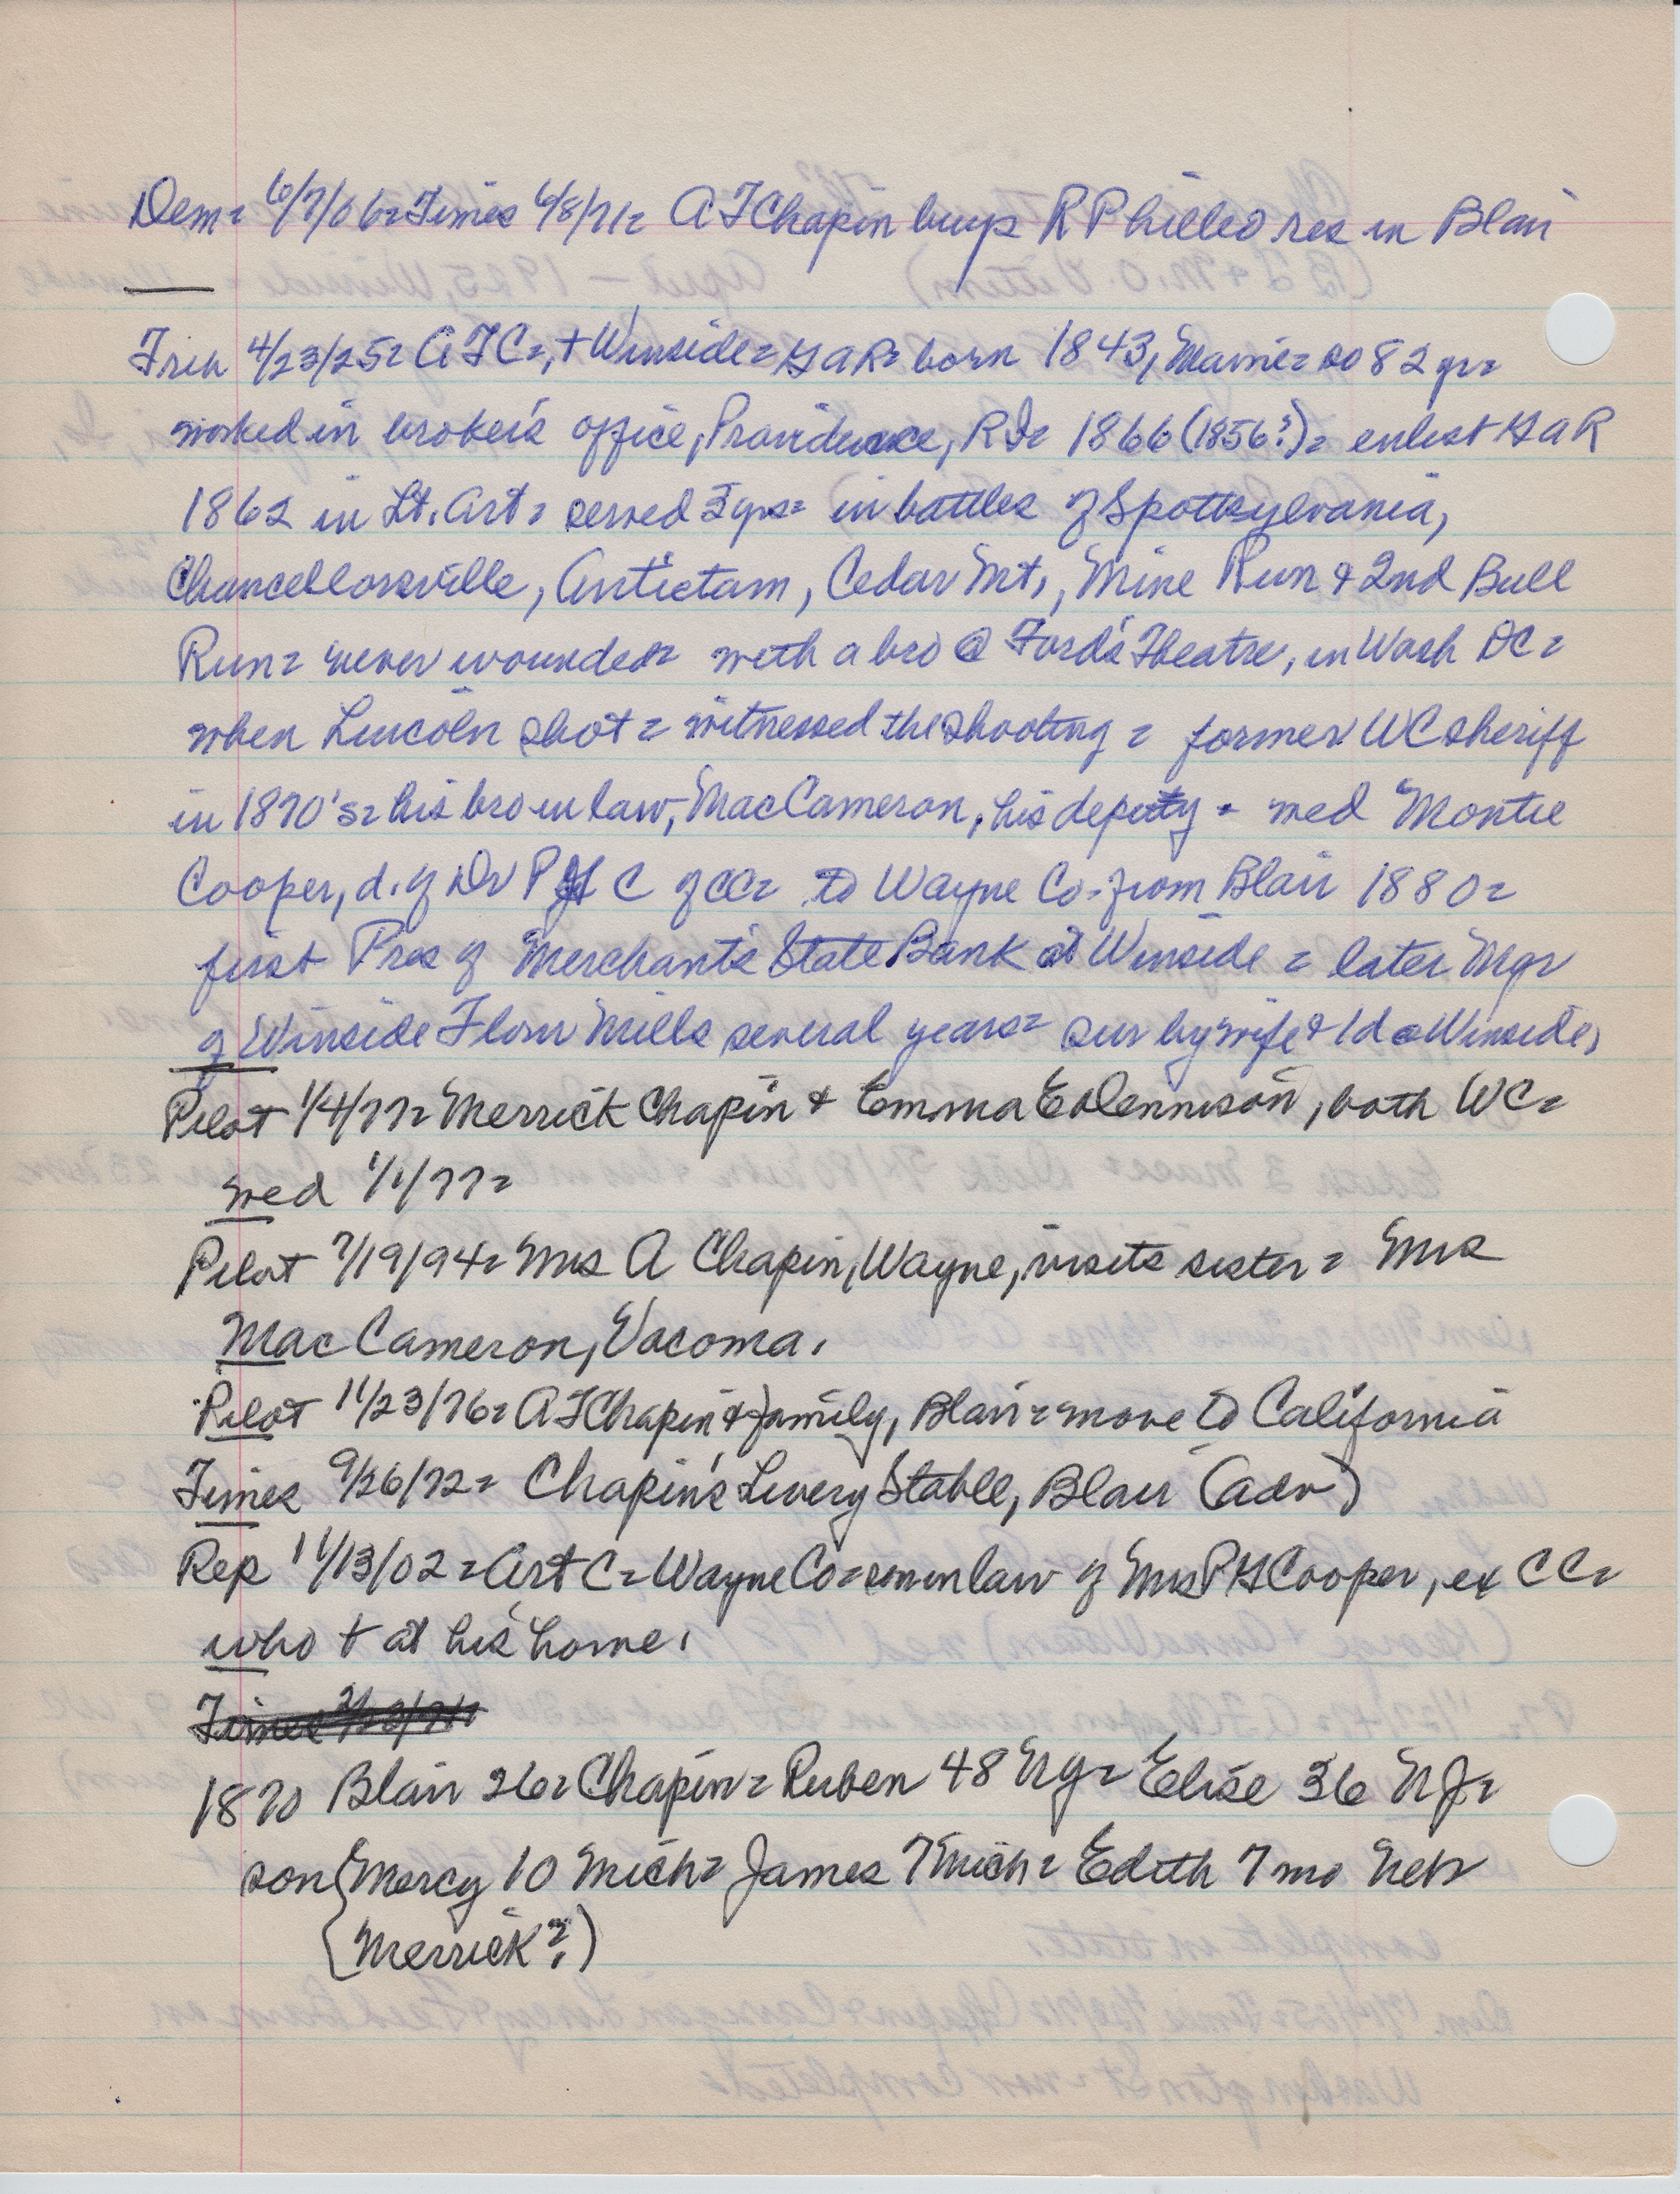 Dem= 6/7/06=Times 6/8/71= A T Chapin buys R Philleo res in Blair
4/23/25= A T C=, + Winside= G A R= born 1843, = 82 yr=
worked in broker's office, Providence, R I= 1866 (1856?)= enlist G A R
1862 in Lt. Art= served 3 yrs= in battles of Spottsylvania,
Chancellorsville, Antietam, Cedar Mt., Mine Run & 2nd Bull
Run= never wounded= with a bro @ Ford's Theatre, in Wash DC=
when Lincoln shot= witnessed the shooting= former WC sheriff
in 1870's= his bro in law, Mac Cameron, his deputy= med Montie
Cooper, d. of Dr P G C of CC= to Wayne Co. from Blair 1880=
first Pres of Merchant's State Bank at Winside= later Mgr
of Winside Flour Mills several years= sur by wife & 1 d @ Winside,
Pilot 1/4/77= Merrick Chapin & Emma E Dennison, both WC=
med 1/1/77=
Pilot 7/19/94= Mrs A Chapin, Wayne, visits sister= Mrs
Mac Cameron, Vacoma.
Pilot 11/23/76= A T Chapin & family, Blair= move to California
Times 9/26/72= Chapin's Livery Stable, Blair (adv)
Rep 11/13/02= Art C= Wayne Co= son in law of Mrs P G Cooper, ex CC=
who + at his home.
1870 Blair 26= Chapin= Ruben 48 NY= Elise 36 NJ=
son {Mercy 10 Mich= James 7 Mich= Edith 7 mo Neb=
{Merrick?)